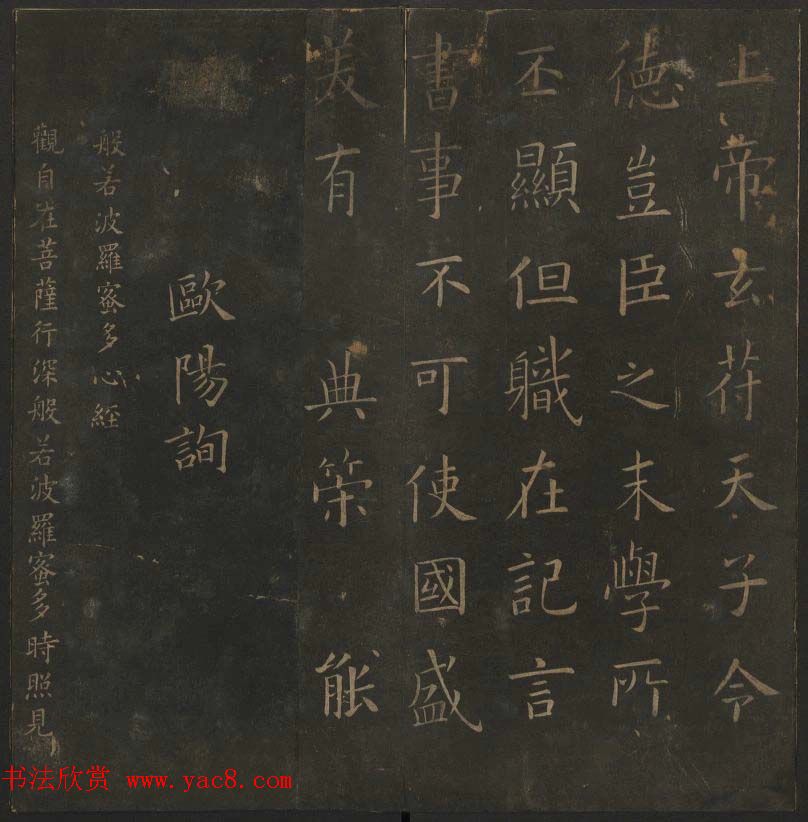 上帝玄符天子令
德豈臣之末學所
丕顯但職在記言
書事不可使國盛
美有典策能
歐陽詢
般若波羅蜜多心經
觀自在菩薩行深般若波羅蜜多時照見
书法欣赏 www.yac8.com